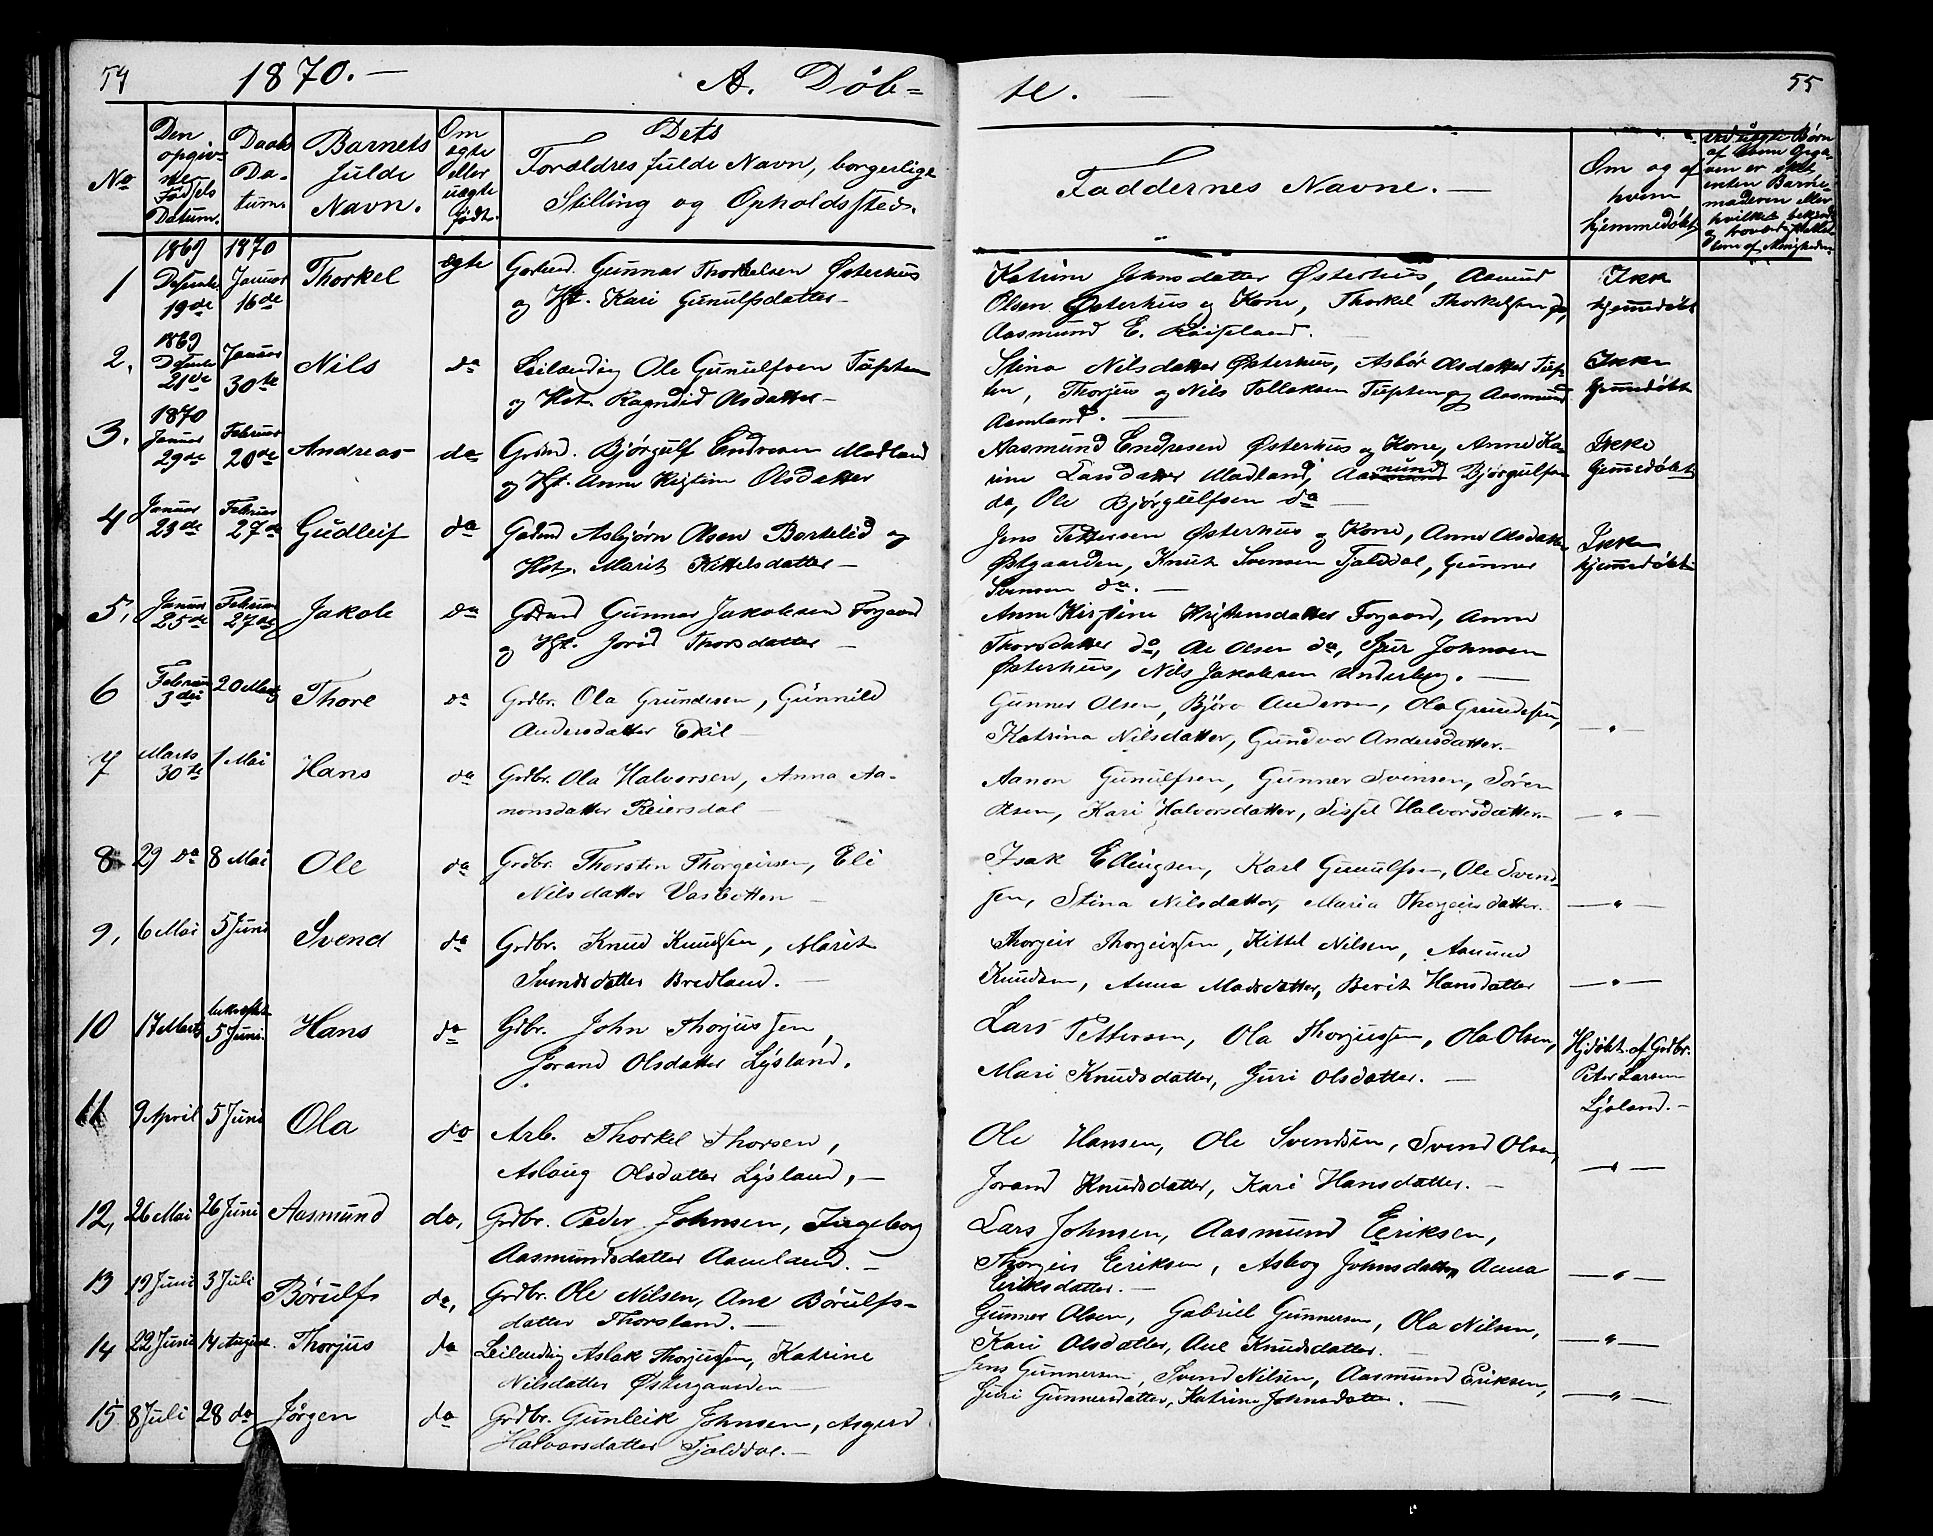 54 1870. — A. Døb- te. — 55
No
Den opgivne Fødsels Datum.
Daabs Datum.
Barnets fulde Navn.
Om ægte eller uægte født.
Dets Forældres fulde Navn, borgerlige Stilling og Opholdssted.
Faddernes Navne. —
Om og af hvem hjemmedøbt
1 1869 Desember 19de 1870 Januar 16de Thorkel ægte
Gunnar Thorkelsen Østerhus
og Hst. Kari Gunulfsdatter —
Katrine Johnsdatter Østerhus, Aasmund
Olsen Østerhus og Kone, Thorkel Thorkelsen do,
Aasmund E.
Ikke hjemmedøbt
2. 1869 Desember 21de Januar 30te Nils do
Leilænding Ole Gunulfsen Tuften
og Hst. Ragndid Olsdatter —
Stina Nilsdatter Østerhus, Asbør Olsdatter Tuf-
ten, Thorjus og Nils Tellefsen Tuften og Aasmund
Aamland. —
Ikke hjemmedøbt
3. 1870 Januar 29de Februar 20de Andreas do
Grdmd. Bjørgulf Endresen Madland
og Hst. Anne Kistine Olsdatter
Aasmund Endresen Østerhus og Kone, Anne Ka-
rine Larsdatter Madland, Bjørgulfsen
do, Ole Bjørgulfsen do —
Ikke hjemmedøbt
4 Januar 23de Februar 27de Gudleif do
Asbjørn Olsen Bortelid og
Hst. Marit Kittelsdatter —
Jens Pettersen Østerhus og Kone, Anne Olsdatter
Østgaarden, Knut Svensen Fjalddal, Gunner
Svensen do. —
Ikke hjemmedøbt
5, Januar 25de Februar 27de Jakob do
Gunnar Jakobsen Frøgaard
og Hst. Jorid Thorsdatter —
Anne Kistine Kristensdatter Frøgaard, Anne
Thorsdatter do, Ole Olsen do, Sjur Johnsen
Østerhus, Nils Jakobsen —
6 Februar 3die 20 Marts Thore do
Grdbr. Ola Grundesen, Gunnild
Andersdatter Eikil —
Gunner Olsen, Bjørn Andersen, Ola Grundesen,
Katrina Nilsdatter, Gundvor Andersdatter. —
— " —
7 Marts 30te 1 Mai Hans do
Grdbr. Ola Halvorsen, Anna Aa-
nonsdatter Reiersdal —
Aanon Gunulfsen, Gunner Svensen, Søren
Olsen, Kari Halvorsdatter, Sissel Halvorsdatter. —
— " —
8 29 do 8 Mai Ole do
Grdbr. Thorsten Thorgeirsen, Eli
Nilsdatter Vasbotten —
Isak Ellingsen, Karl Gunulfsen, Ole Svend-
sen, Stina Nilsdatter, Maria Thorgeirsdatter.
— " —
9, 6 Mai 5 Juni Svend do
Grdbr. Knud Knudsen, Marit
Svendsdatter Bredland. —
Thorgeir Thorgeirsen, Kittel Nilsen, Aamund
Knudsen, Anna Madsdatter, Berit Hansdatter
— " —
10 17 Marts bekræftet 5 Juni. Hans do
Gdbr. John Thorjussen
Jorand Olsdatter Lysland.
Lars Pettersen, Ola Thorjussen, Ola Olsen,
Mari Knudsdatter, Guri Olsdatter. —
Hjdøbt af Grdbr.
Peter Larsen
Lysland. —
11 9 April 5 Juni Ola do
Arb. Thorkel Thorsen,
Aslaug Olsdatter Lysland, —
Ole Hansen, Ole Svendsen, Svend Olsen,
Jorand Knudsdatter, Kari Hansdatter. —
— " —
12, 26 Mai 26 Juni Aasmund do,
Grdbr. Peder Johnsen, Ingeborg
Aasmundsdatter Aamland. —
Lars Johnsen, Aasmund Eriksen,
Thorgeir Eriksen, Asbog Johnsdatter, Anna
Eriksdatter. —
— " —
13 19 Juni 3 Juli Børulfs do,
Grdbr. Ole Nilsen, Ane Børulfs-
datter Thorsland. —
Gunner Olsen, Gabriel Gunnersen, Ola Nilsen,
Kari Olsdatter, Ane Knudsdatter. —
— " —
14 22 Juni 14 August. Thorjus do
Leilending Aslak Thorjussen, Katrine
Nilsdatter Østergaarden —
Jens Gunnersen, Svend Nilsen, Aasmund Eriksen,
Guri Gunnersdatter, Katrine Johnsdatter. —
— " —
15 8 Juli 28 do Jørgen do
Grdbr. Gunleik Johnsen, Asgerd
Halvorsdatter Fjalddal. —